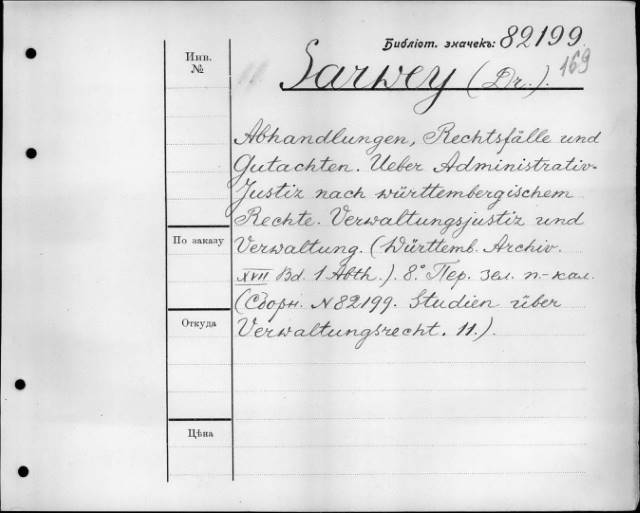 Библіот. значекъ: 82199
169
Инв. №
11
Sarwey (Dr.).
Abhandlungen, Rechtsfälle und
Gutachten. Ueber Administrativ-
Justiz nach württembergischem
Rechte. Verwaltungsjustiz und
По заказу
Verwaltung. (Württemb. Archiv.
XVII. Bd. 1 Abth.). 8.° Пер. зел. п.-кал.
(Сборн. N 82199. Studien über
Откуда
Verwaltungsrecht. 11.).
Цѣна